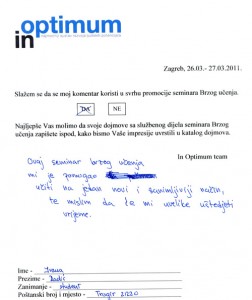 optimum
in
Zagreb, 26.03.- 27.03.2011.
Slažem se da se moj komentar koristi u svrhu promocije seminara Brzog učenja.
DA NE
Najljepše Vas molimo da svoje dojmove sa službenog dijela seminara Brzog
učenja zapišete ispod, kako bismo Vaše impresije uvrstili u katalog dojmova.
In Optimum team
Ovaj seminar brzog učenja
mi je pomogao
učiti na jedan novi i zanimljiviji način,
te mislim da će mi uvelike uštedjeti
vrijeme.
Ime - Ivana
Prezime - Radić
Zanimanje - student
Poštanski broj i mjesto - Trogir 21220